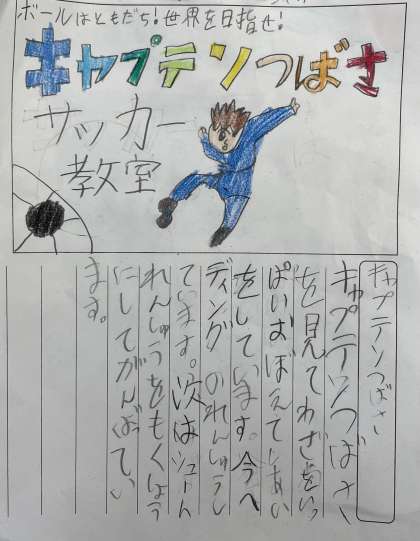 ボールはともだち!世界を目指せ!
キャプテンつばさ
サッカー
教室
キャプテンつばさ
キャプテンつばさ
を見てわざをいっ
ぱいおぼえてしあい
をしています。今へ
ディングのれんしゅうし
ています。次はシュートん
れんしゅうをもくひょう
にしてがんばてい
ます。